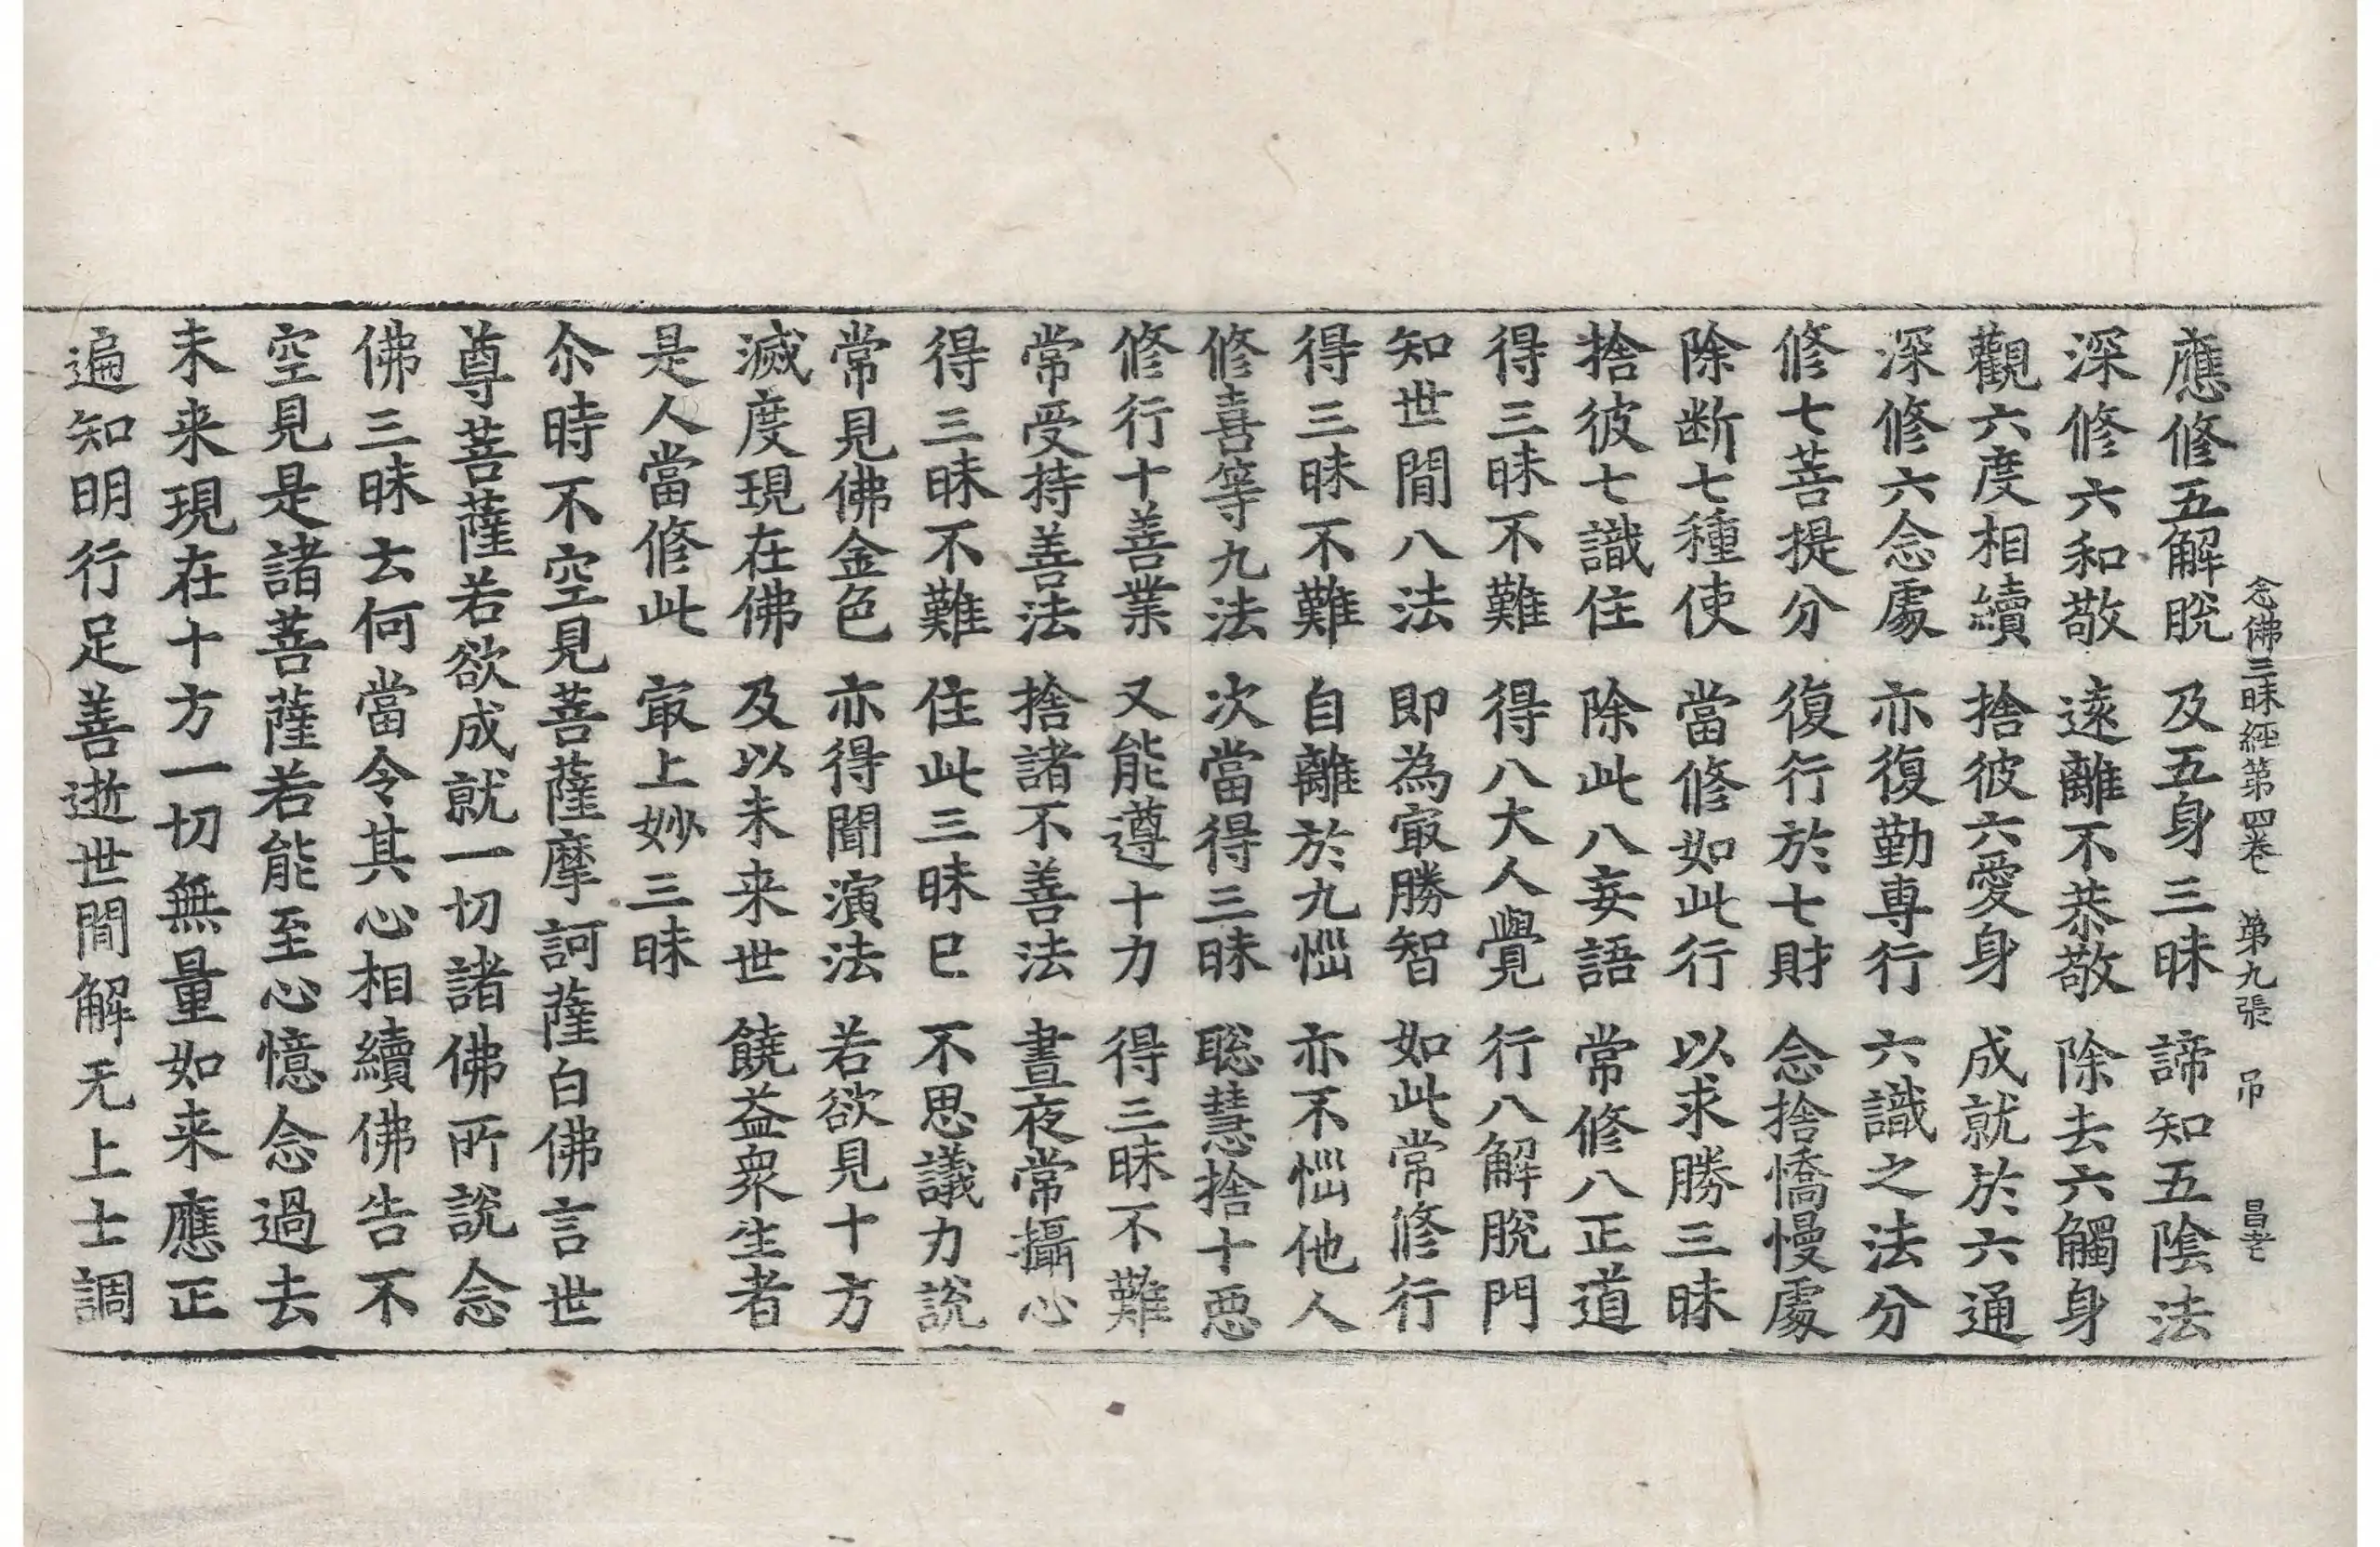 念佛三昧経第四巻　第九張　吊　昌老
應修五解脫　及五身三昧　諦知五陰法
深修六和敬　遠離不恭敬　除去六觸身
觀六度相續　捨彼六愛身　成就於六通
深修六念處　亦復勤專行　六識之法分
修七菩提分　復行於七財　念捨憍慢處
除断七種使　當修如此行　以求勝三昧
捨彼七識住　除此八妄語　常修八正道
得三昧不難　得八大人覺　行八解脫門
知世間八法　即為㝡勝智　如此常修行
得三昧不難　自離於九惱　亦不惱他人
修喜等九法　次當得三昧　聡慧捨十惡
修行十善業　又能遵十力　得三昧不難
常受持善法　捨諸不善法　晝夜常攝心
得三昧不難　住此三昧已　不思議力說
常見佛金色　亦得聞演法　若欲見十方
滅度現在佛　及以未来世　饒益衆生者
是人當修此　㝡上妙三昧
尒時不空見菩薩摩訶薩白佛言世
尊菩薩若欲成就一切諸佛所說念
佛三昧云何當令其心相續佛告不
空見是諸菩薩若能至心憶念過去
未来現在十方一切無量如来應正
遍知明行足善逝世間解无上士調